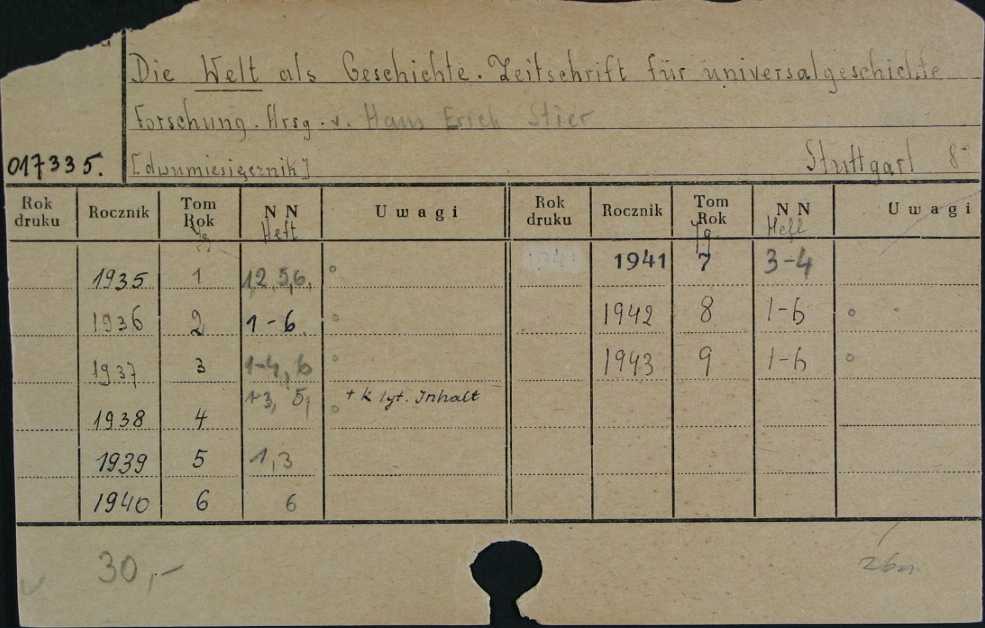 Die Welt als Geschichte. Zeitschrift für universalgeschichte
Forschung. Hrsg. v. Hans Erich Stier
017335. [dwumiesięcznik] Stuttgart 8°
Rok druku Rocznik Tom Rok NN Uwagi Rok druku Rocznik Tom Rok NN Uwagi
Jg Heft Jg Heft
1935 1 1,2,5,6, ° 1941 1941 7 3-4
1936 2 1-6. ° 1942 8 1-6 °
1937 3 1-4, 6 ° 1943 9 1-6 °
1938 4 1-3, 5, ° + k tyt. Inhalt
1939 5 1,3
1940 6 6
30,-